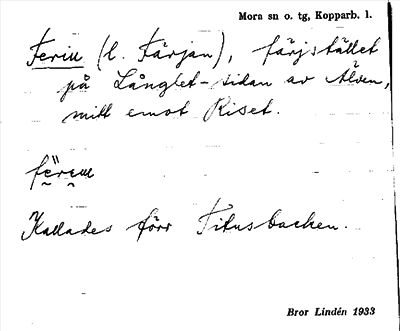 Mora sn o. tg, Kopparb. l.
Feriu (l. Färjan), färjstället
på Långlet-sidan av Älven,
mitt emot Riset.
Kallades förr Titusbacken.
Bror Lindén 1933